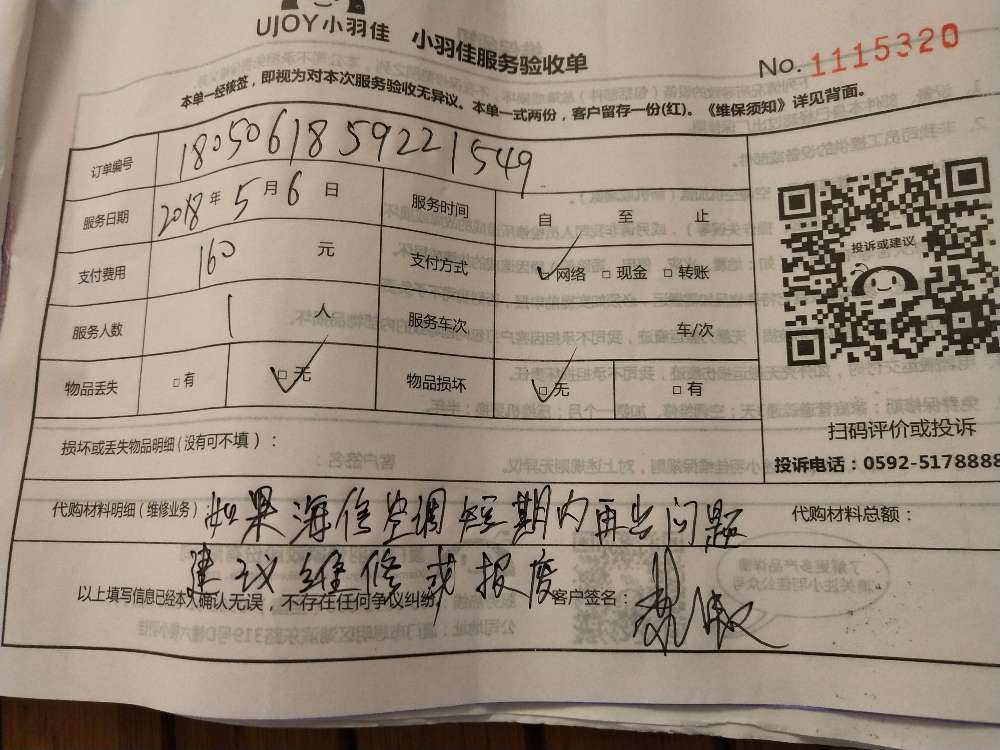 UJOY小羽佳 小羽佳服务验收单
No. 1115320
本单一经核签，即视为对本次服务验收无异议。本单一式两份，客户留存一份(红)。《维保须知》详见背面。
订单编号 180506185922 1549
服务日期 2018年 5月 6日 服务时间 自 至 止
支付费用 160 元 支付方式 □网络 □现金 □转账
服务人数 1 人 服务车次 车/次
物品丢失 □有 □无 物品损坏 □无 □有
投诉或建议
扫码评价或投诉
投诉电话：0592-5178888
损坏或丢失物品明细（没有可不填）：
代购材料明细（维修业务）：如果海信空调短期内再出问题 代购材料总额：
建议维修或报废
以上填写信息已经本人确认无误，不存在任何争议纠纷。 客户签名：